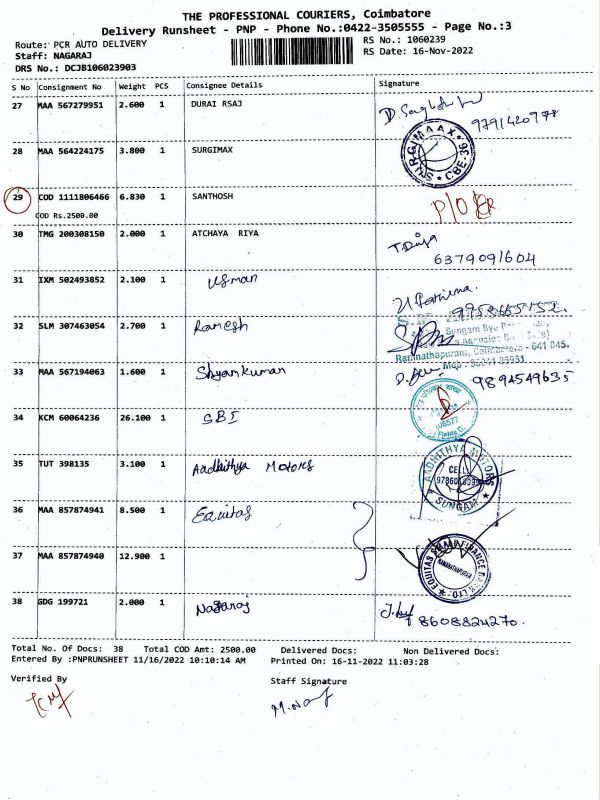 THE PROFESSIONAL COURIERS, Coimbatore
Delivery Runsheet - PNP - Phone No.:0422-3505555 - Page No.:3
Route: PCR AUTO DELIVERY
RS No.: 1060239
Staff: NAGARAJ
RS Date: 16-Nov-2022
DRS No.: DCJB106023903
S No Consignment No Weight PCS Consignee Details Signature
27 MAA 567279951 2.600 1 DURAI RSAJ
9791420978
28 MAA 564224175 3.800 1 SURGIMAX
SURGIMAAX CBE-36
29 COD 1111806466 6.830 1 SANTHOSH
COD Rs.2500.00
30 TMG 200308150 2.000 1 ATCHAYA RIYA
6379091604
31 IXM 502493852 2.100 1 Usman
32 SLM 307463054 2.700 1 Ramesh
Ramnathapuram, Coimbatore - 641 045.
33 MAA 567194063 1.600 1 Shyamkumar
9894549635
34 KCM 60064236 26.100 1 SBI
35 TUT 398135 3.100 1 Aadhithya Motors
AADHITHYA MOTORS
CELL
SUNGAM
36 MAA 857874941 8.500 1 Equitas
37 MAA 857874940 12.900 1
38 GDG 199721 2.000 1 Nagaraj
8608824270
Total No. Of Docs: 38 Total COD Amt: 2500.00 Delivered Docs: Non Delivered Docs:
Entered By :PNPRUNSHEET 11/16/2022 10:10:14 AM Printed On: 16-11-2022 11:03:28
Verified By Staff Signature